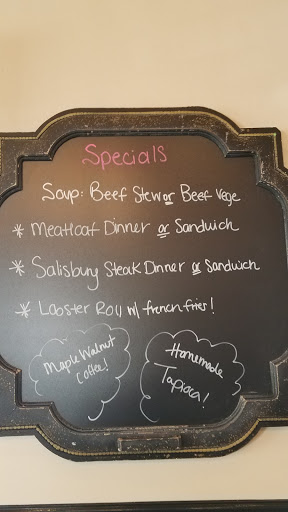 Specials
Soup: Beef Stew or Beef Vege
* Meatloaf Dinner or Sandwich
* Salisbury Steak Dinner or Sandwich
* Lobster Roll w/ french fries!
Maple Walnut
Coffee!
Homemade
Tapioca!